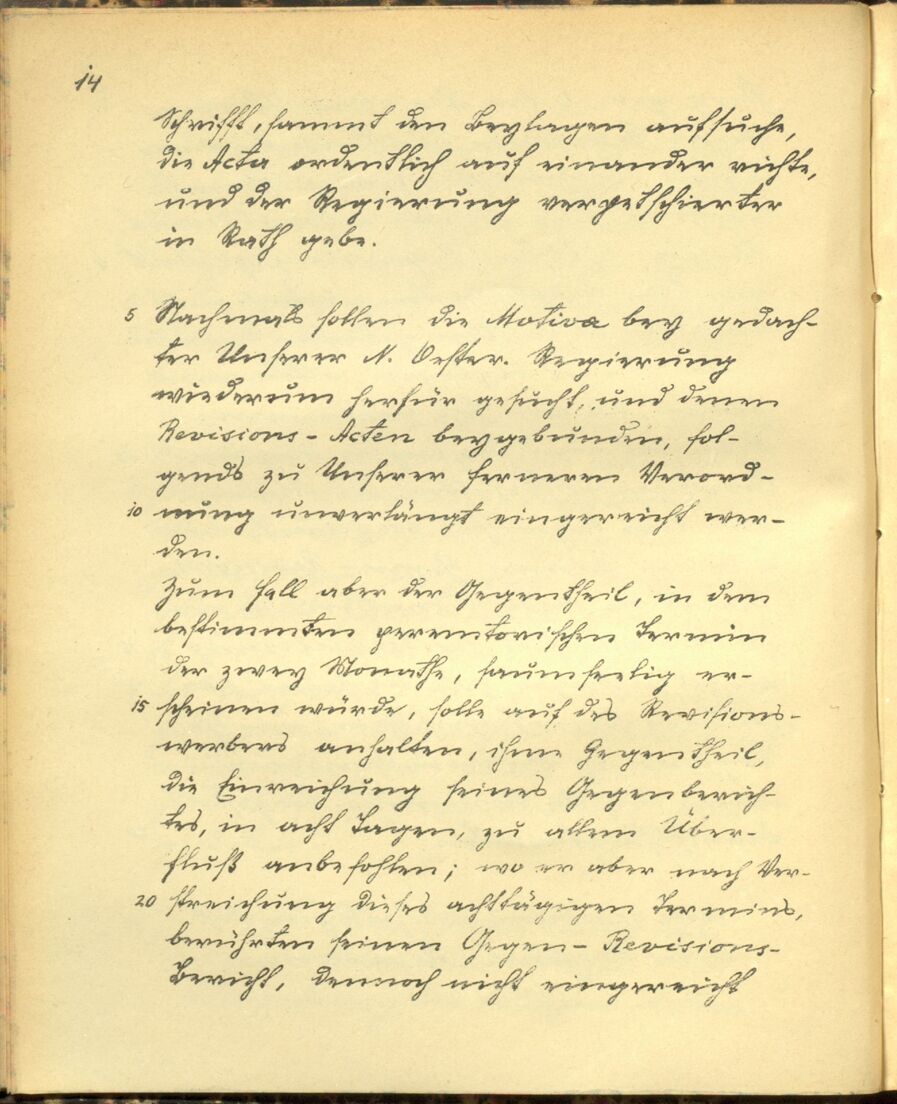 14
Schrifft, sammt den Beylagen aufsuche,
die Acta ordentlich auf einander richte,
und der Regierung verpetschierter
in Rath gebe.
5 Nachmals sollen die Motiva bey gedach-
ter Unserer N. Oester. Regierung
wiederum herfür gesucht, und denen
Revisions-Acten beygebunden, fol-
gends zu Unserer ferneren Verord-
10 nung unverlängt eingereicht wer-
den.
Zum Fall aber der Gegentheil, in dem
bestimmten peremtorischen Termin
der zwey Monathe, saumseelig er-
15 scheinen würde, solle auf des Revisions-
werbers anhalten, ihme Gegentheil,
die Einreichung seines Gegenberich-
tes, in acht Tagen, zu allem Über-
fluß anbefohlen; wo er aber nach Ver-
20 streichung dieses achttägigen Termins,
berührten seinen Gegen-Revisions-
Bericht, dennoch nicht eingereicht